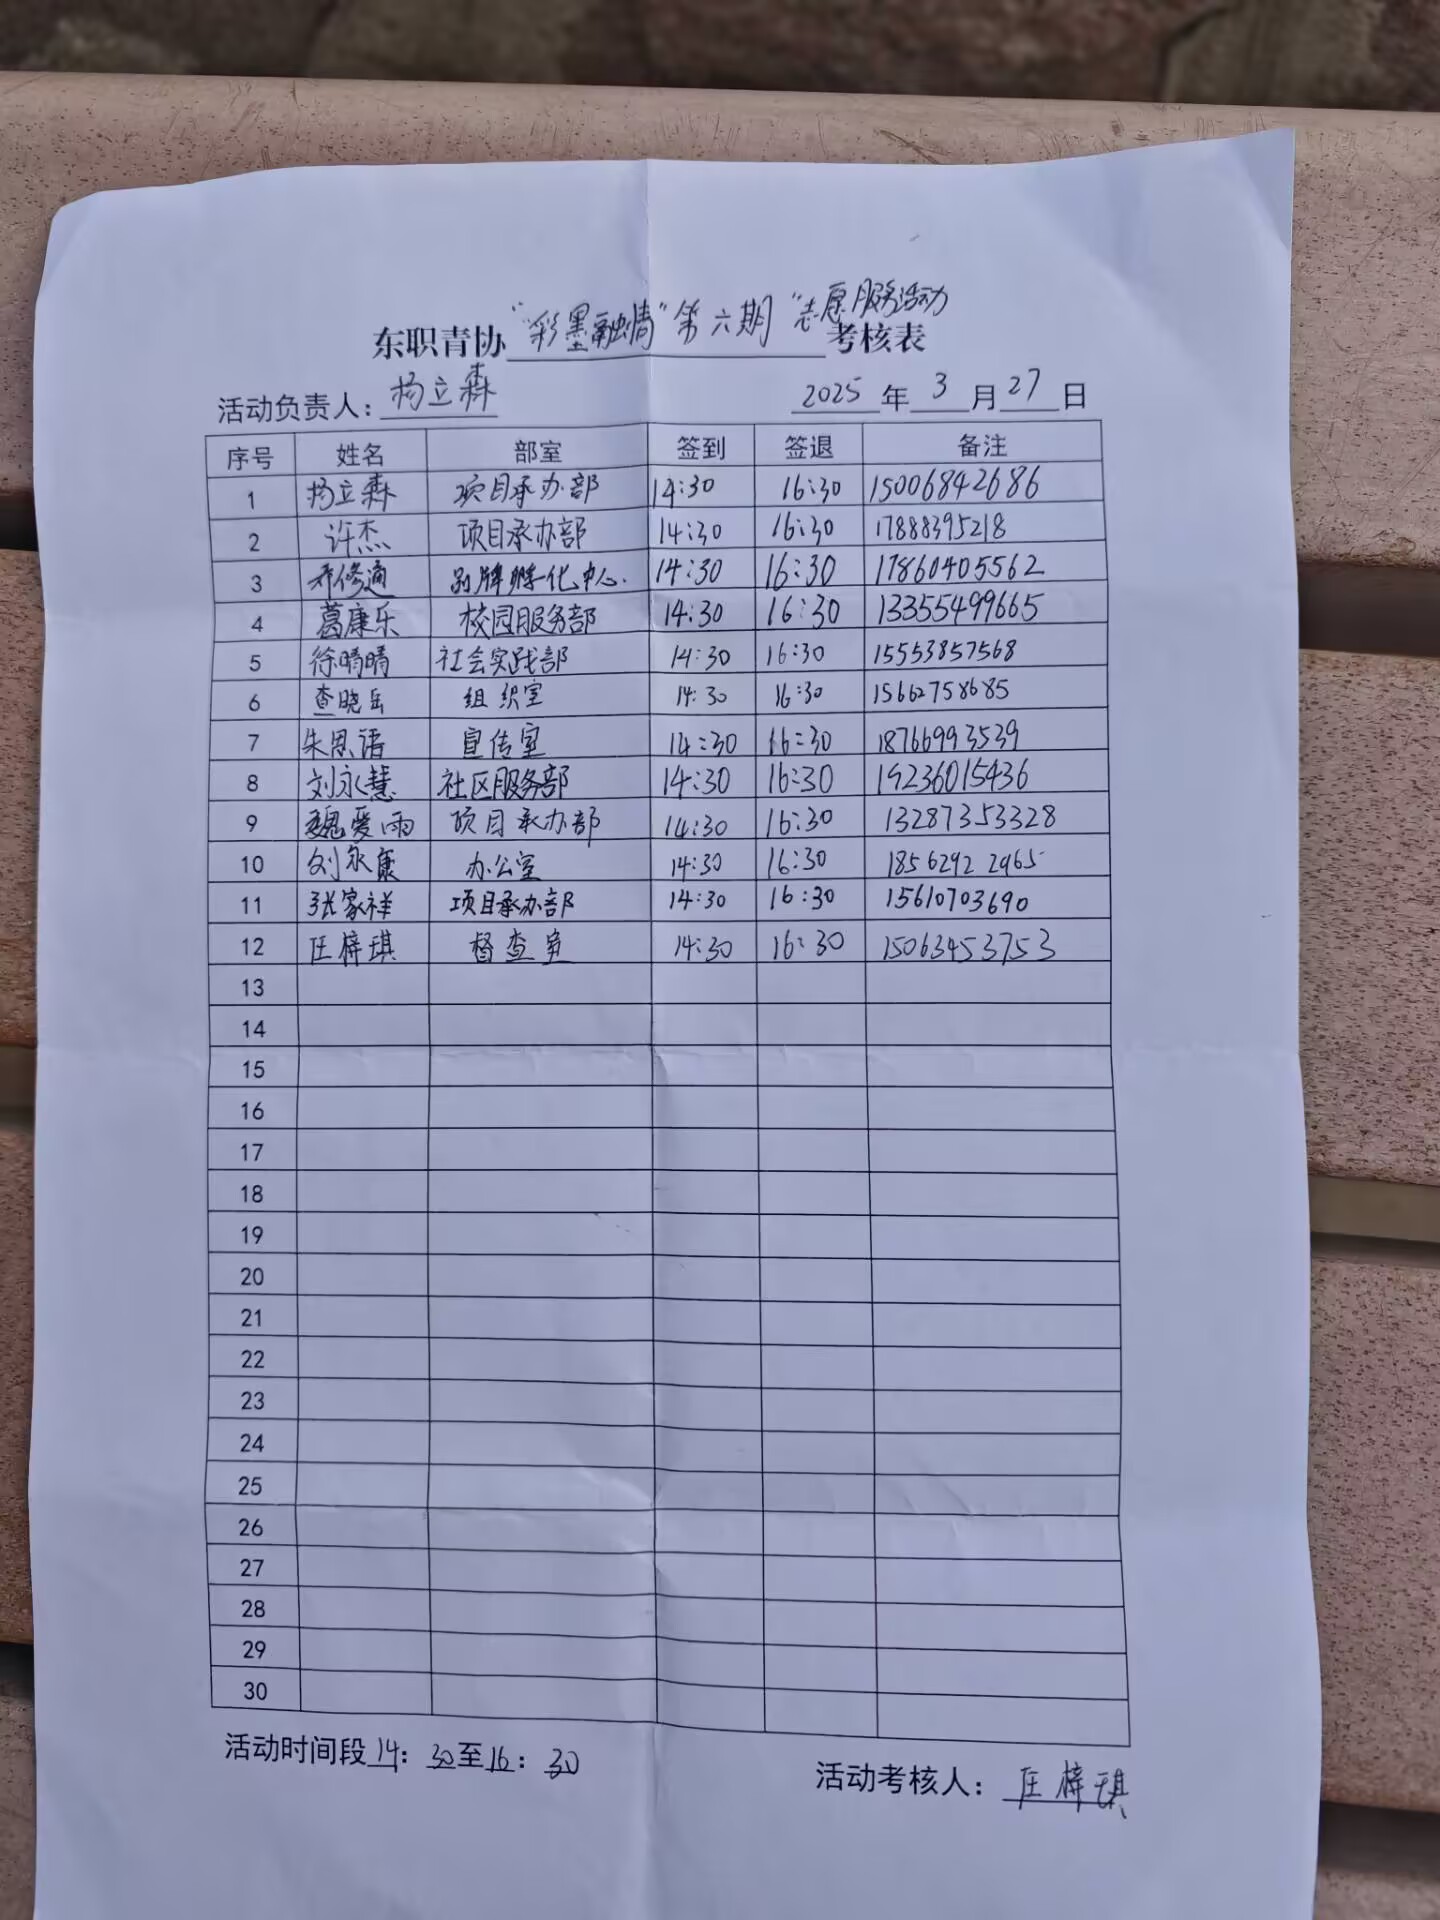 东职青协“彩墨融情”第六期“志愿服务活动考核表
活动负责人：杨立森 2025年3月27日
序号 姓名 部室 签到 签退 备注
1 杨立森 项目承办部 14:30 16:30 15006842686
2 许杰 项目承办部 14:30 16:30 17888395218
3 修通 品牌孵化中心. 14:30 16:30 17860405562
4 葛康乐 校园服务部 14:30 16:30 13355499665
5 徐晴晴 社会实践部 14:30 16:30 15553857568
6 查晓岳 组织室 14:30 16:30 15662758685
7 朱思语 宣传室 14:30 16:30 18766993539
8 刘永慧 社区服务部 14:30 16:30 19236015436
9 魏爱雨 项目承办部 14:30 16:30 13287353328
10 刘永康 办公室 14:30 16:30 18562922965
11 张家祥 项目承办部 14:30 16:30 15610703690
12 庄梓琪 督查室 14:30 16:30 15063453753
13
14
15
16
17
18
19
20
21
22
23
24
25
26
27
28
29
30
活动时间段14：30至16：30
活动考核人：庄梓琪